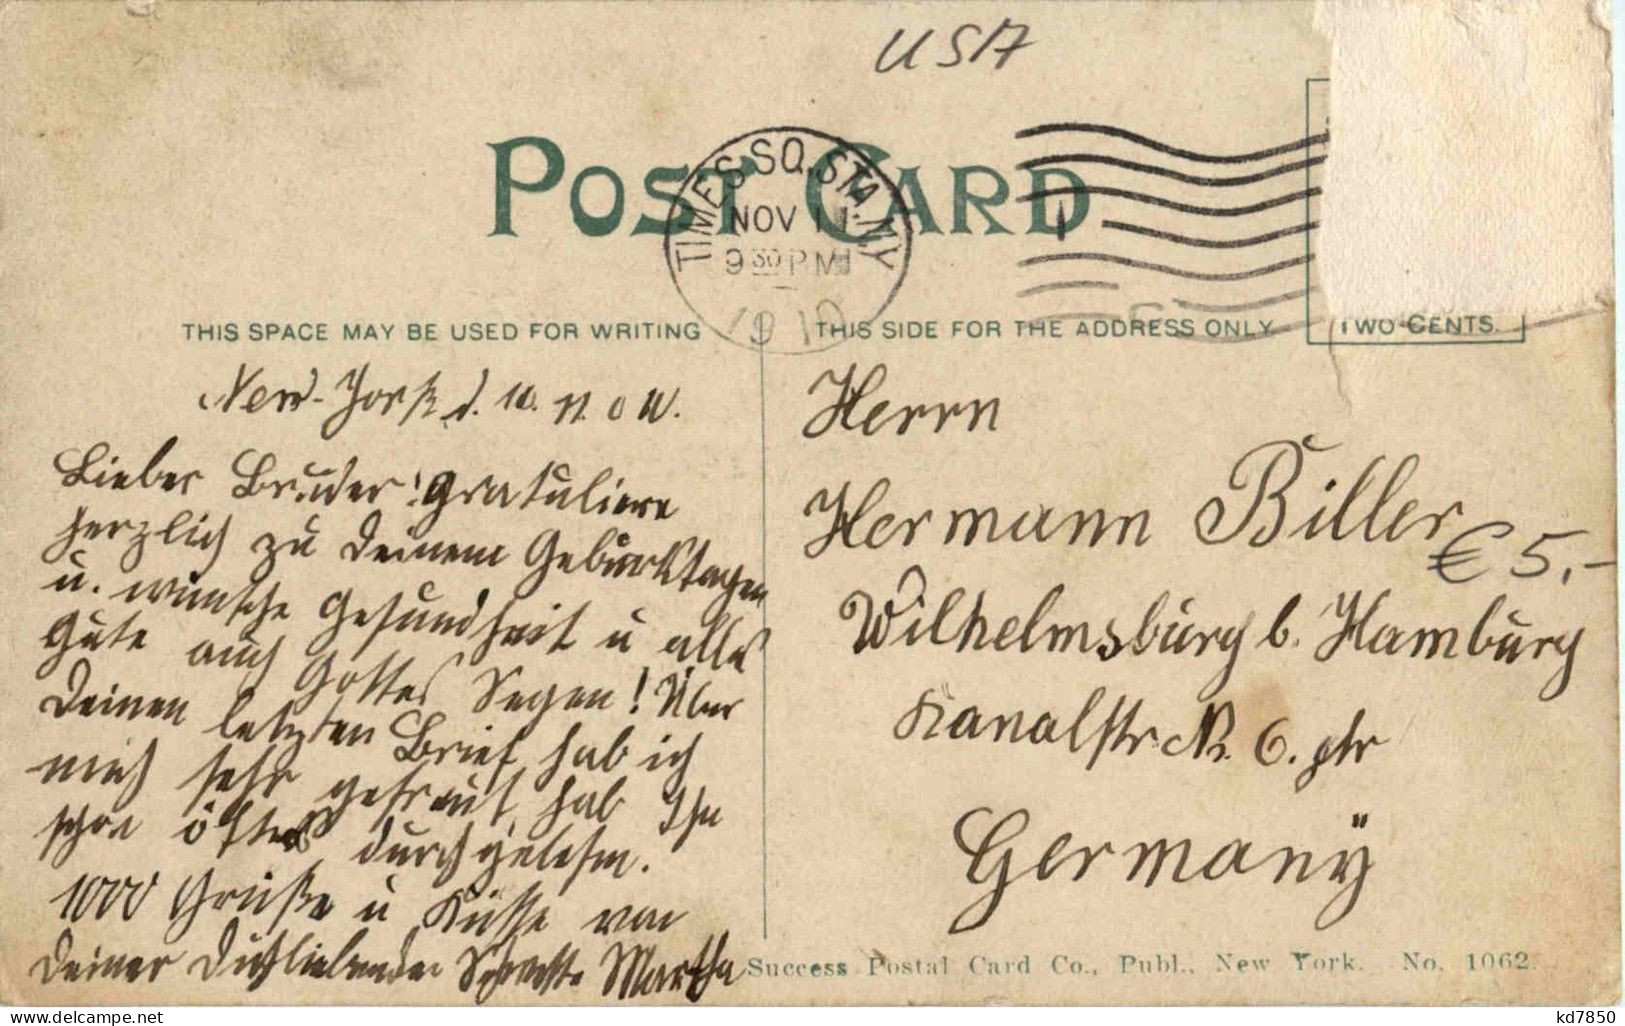 USA
POST CARD
TIMES SQ. STA. N.Y.
NOV 11
9 30 PM
1910
THIS SPACE MAY BE USED FOR WRITING
THIS SIDE FOR THE ADDRESS ONLY
TWO CENTS.
New-York d. 10. 11.
Lieber Bruder! Gratuliere
herzlich zu Deinem Geburtstagen
u. wünsche Gesundheit u alles
Gute auch Gottes Segen! Über
Deinen letzten Brief hab ich
mich sehr gefreut, hab Ihn
schon öfters durchgelesen.
1000 Grüße u Küsse von
Deiner Dichliebenden Schwester Martha
Herrn
Hermann Biller
€ 5,-
Wilhelmsburg b. Hamburg
Kanalstr. No. 6. ptr
Germany
Success Postal Card Co., Publ., New York. No. 1062.
kd7850